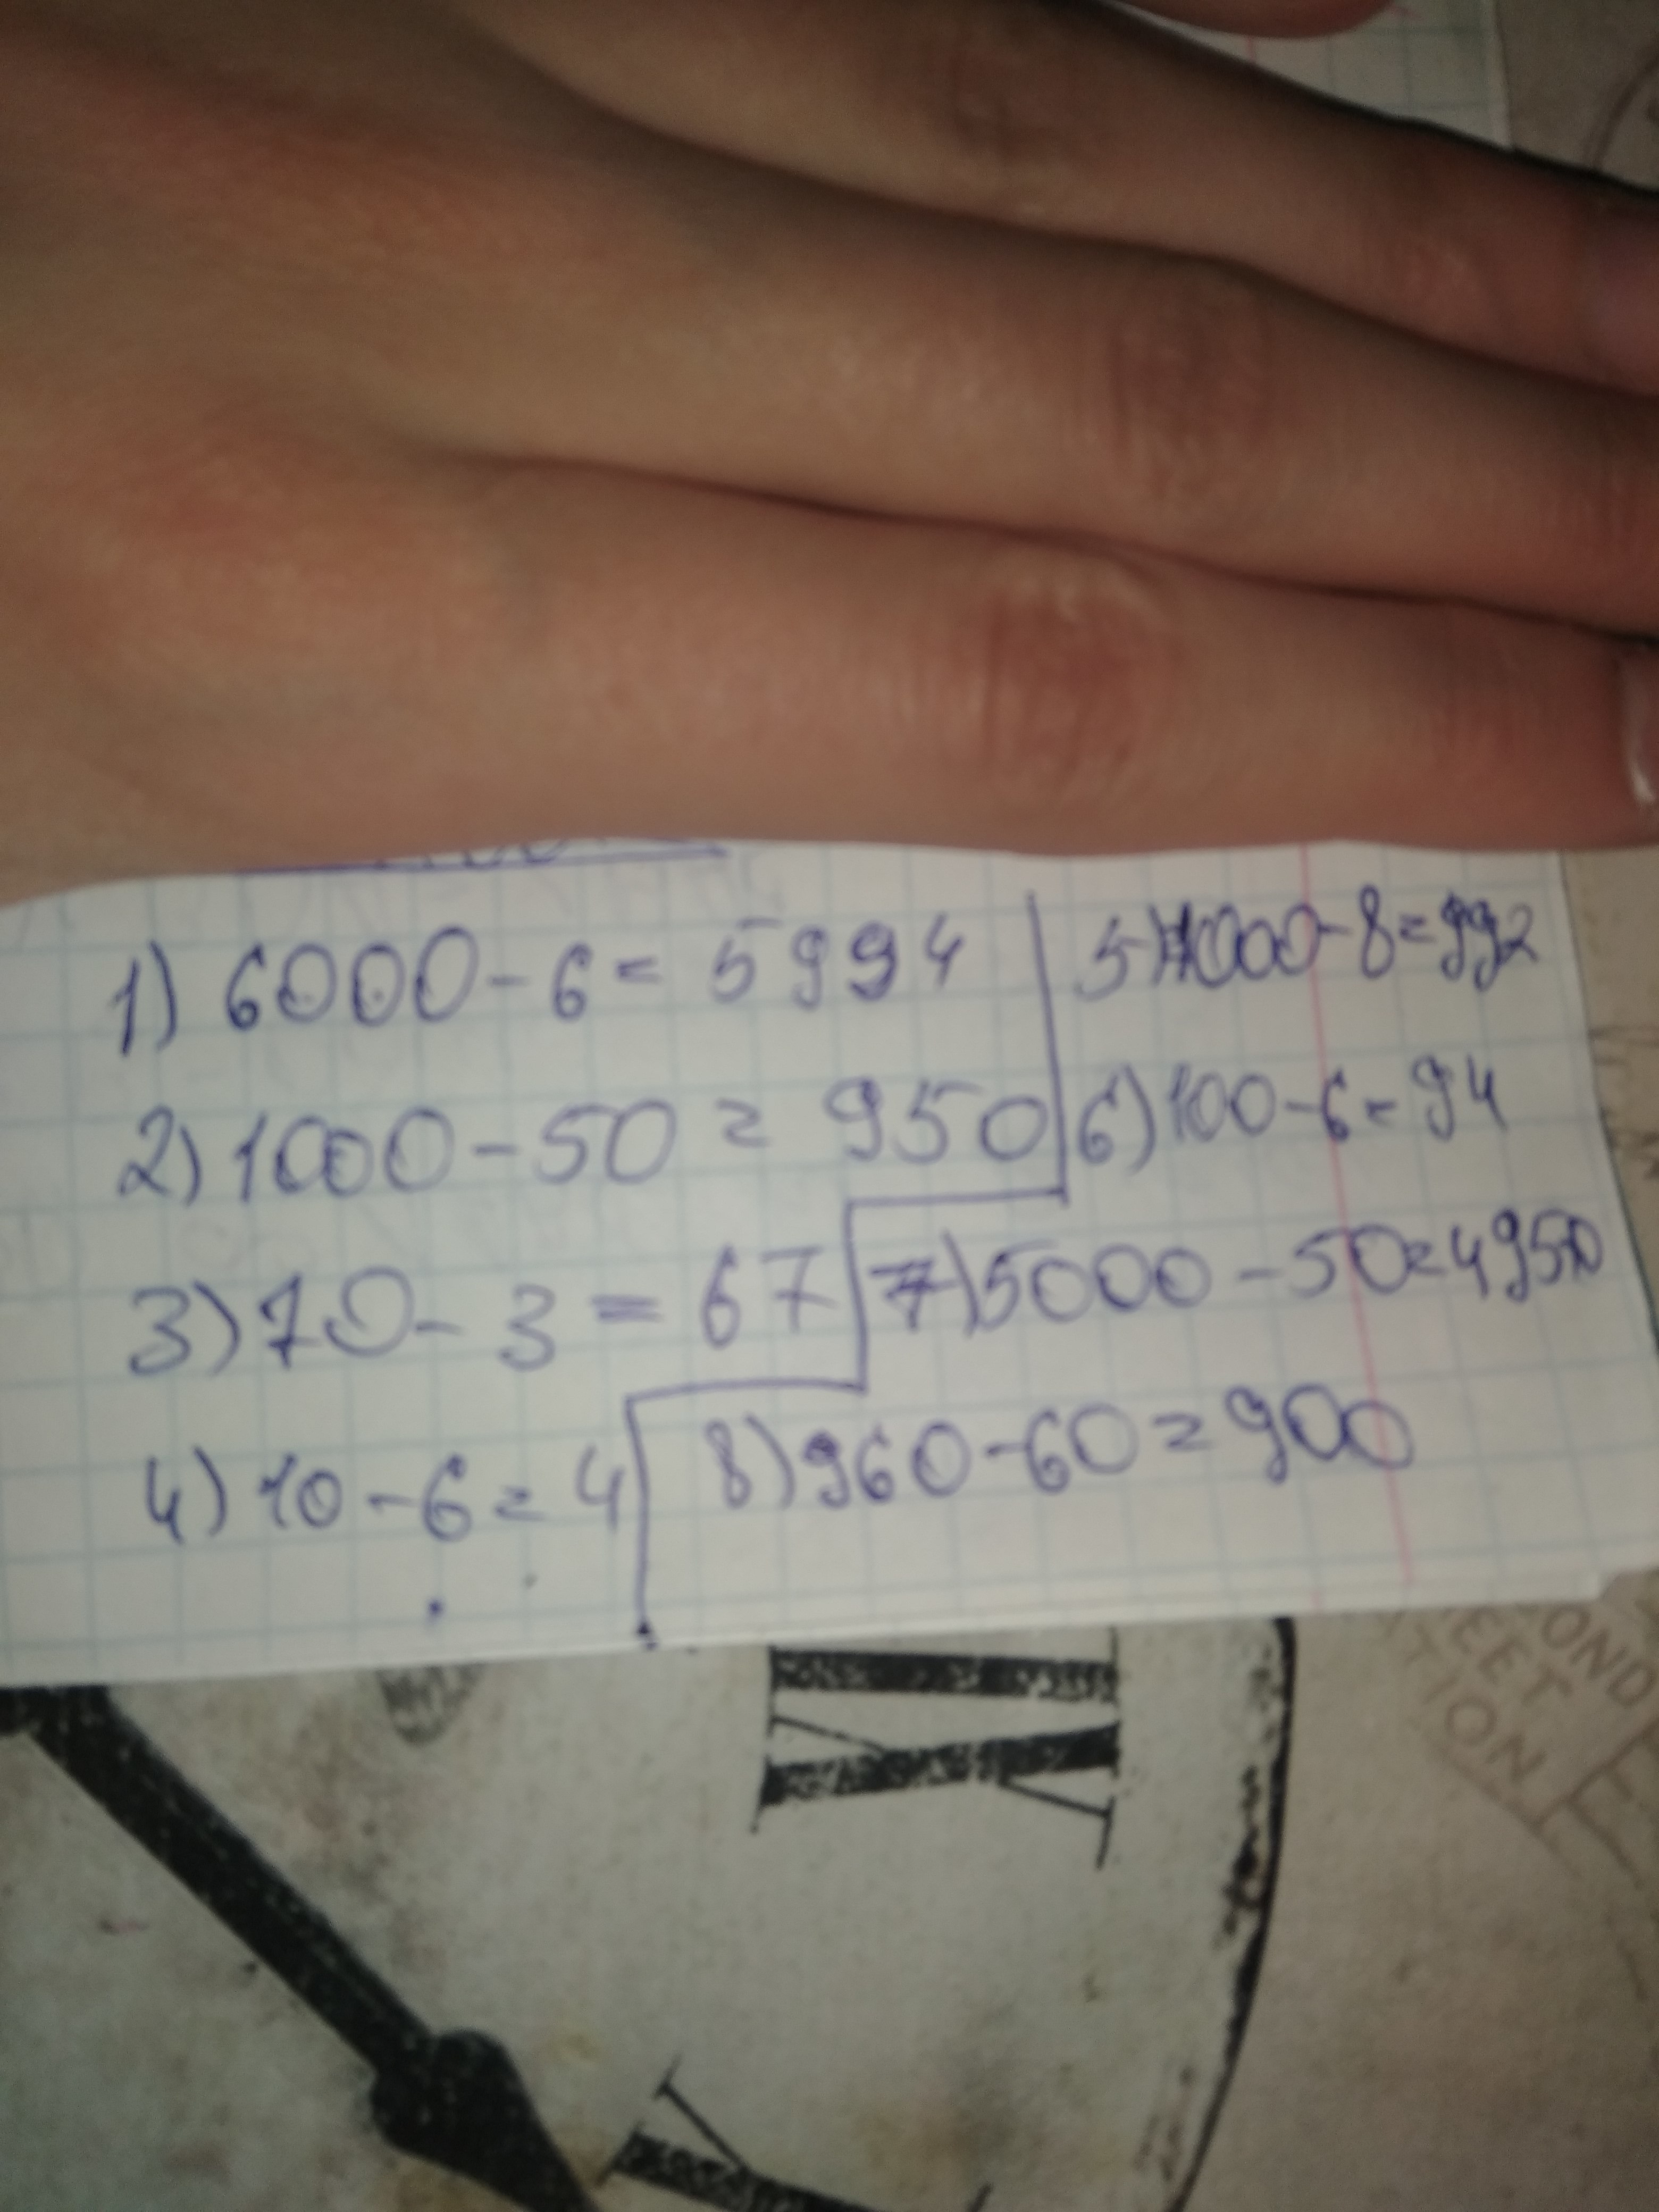 1) 6000 - 6 = 5994
2) 1000 - 50 = 950
3) 70 - 3 = 67
4) 10 - 6 = 4
5) 1000 - 8 = 992
6) 100 - 6 = 94
7) 5000 - 50 = 4950
8) 960 - 60 = 900
OND
EET
TION